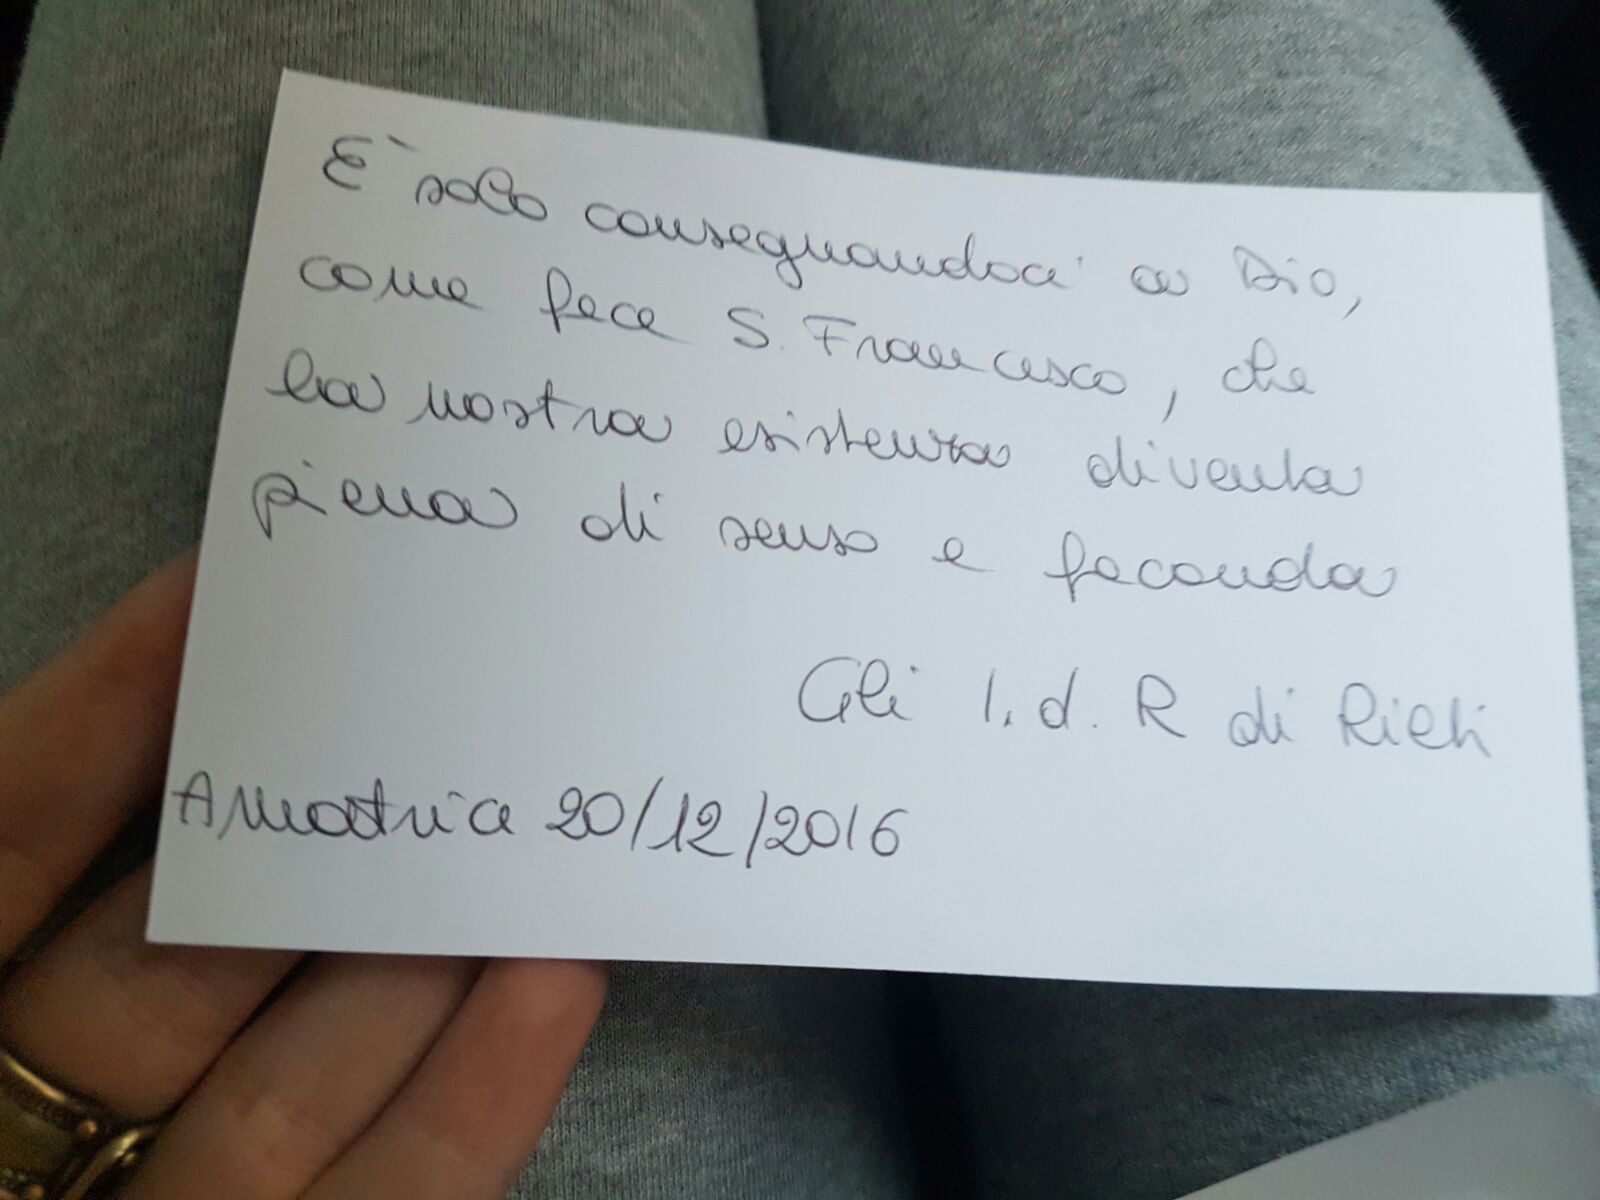 È solo consegnandoci a Dio,
come fece S. Francesco, che
la nostra esistenza diventa
piena di senso e feconda
Gli I. d. R di Rieti
Amatrice 20/12/2016